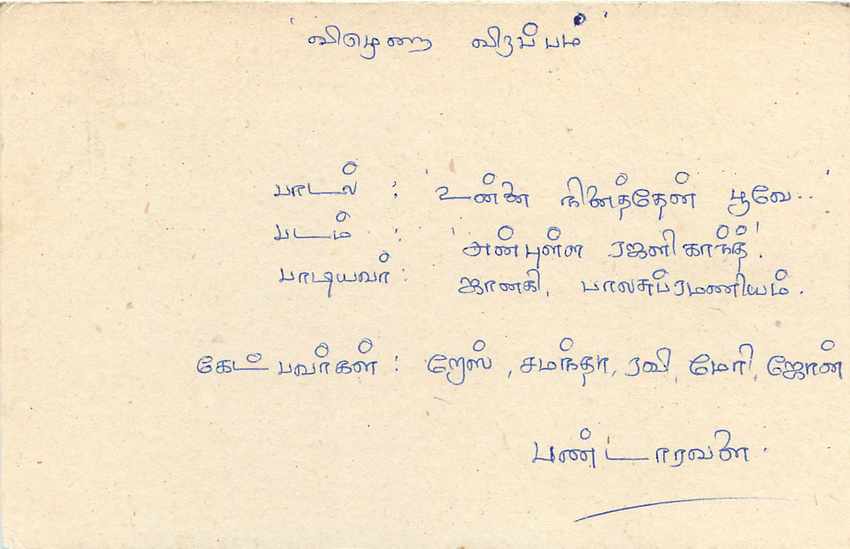 'விடுமுறை விருப்பம்'
பாடல் : 'உன்னை நினைத்தேன் பூவே..'
படம் : 'அன்புள்ள ரஜனிகாந்த்'.
பாடியவர் : ஜானகி, பாலசுப்ரமணியம்.
கேட்பவர்கள் : றேஸ், சமந்தா, ரவி, மேரி, ஜோன்
பண்டாரவளை.